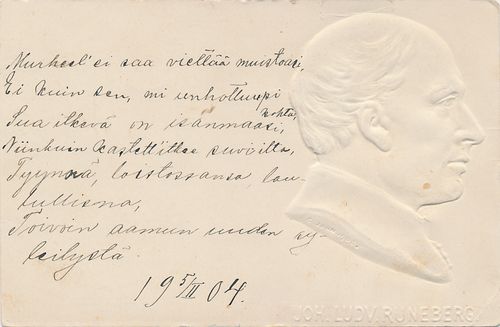 Murheel' ei saa viettää muistoasi,
Ei kuin sen, mi unhottuupi
kohta,
Sua itkevä on isänmaasi,
Niinkuin kastett' itkee suviilta,
Tyynnä, loistossansa, lau-
tullisna,
Toivoin aamun uuden sy-
teilystä.
19 5/II 04.
JOH. LUDV. RUNEBERG